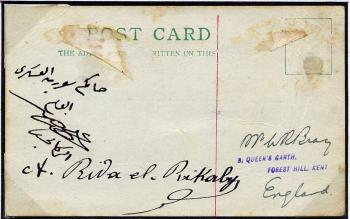 POST CARD
THE AD WRITTEN ON THIS
حاكم سورية العسكري
العام
علي رضا
الركابي
A. Riḍa el. Rikaby
Mr W R Bray
8, QUEEN'S GARTH,
FOREST HILL, KENT
England.